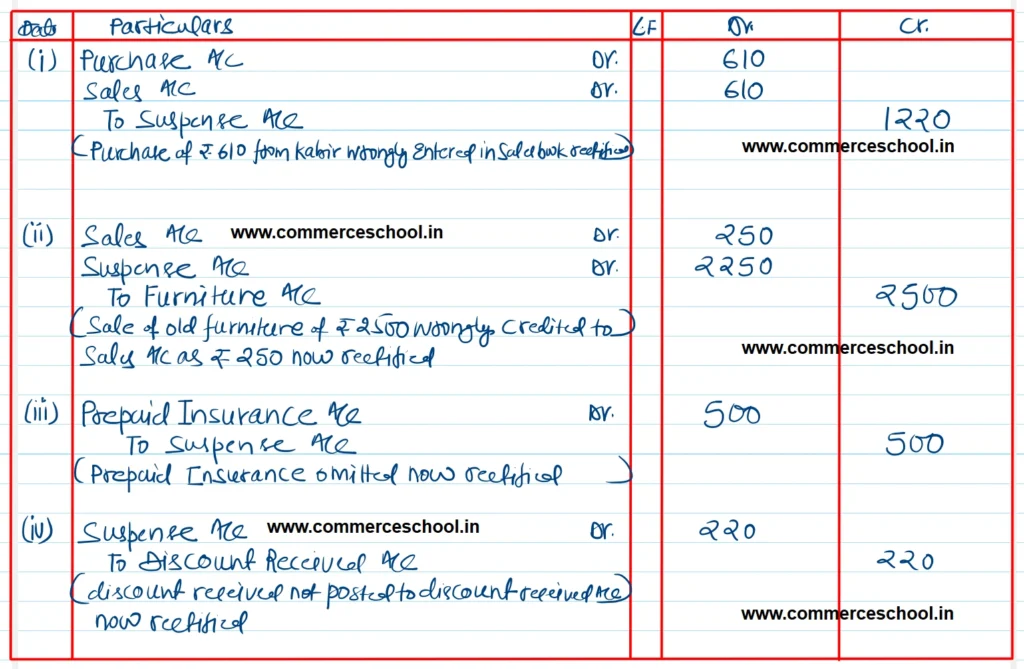 Date Particulars L.F Dr. Cr.
(i) Purchase A/C Dr. 610
Sales A/C Dr. 610
To Suspense A/C 1220
(Purchase of ₹ 610 from Kabir wrongly Entered in Sales book rectified) www.commerceschool.in
(ii) Sales A/C www.commerceschool.in Dr. 250
Suspense A/C Dr. 2250
To Furniture A/C 2500
(Sale of old furniture of ₹ 2500 wrongly credited to)
Sales A/C as ₹ 250 now rectified www.commerceschool.in
(iii) Prepaid Insurance A/C Dr. 500
To Suspense A/C 500
(Prepaid Insurance omitted now rectified )
(iv) Suspense A/C www.commerceschool.in Dr. 220
To Discount Received A/C 220
(discount received not posted to discount received A/C)
now rectified www.commerceschool.in